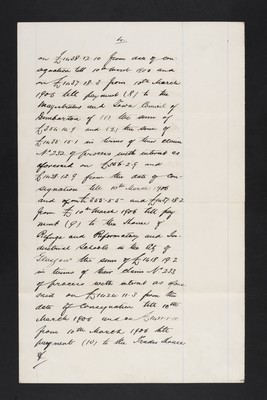 4.
on £1428.12.10 from date of con
signation till 10th March 1906 and
on £1457.18.3 from 10th March
1906 till payment (8) to the
Magistrates and Town Council of
Dumbarton of (1) the sum of
and (2) the sum of
in terms of their claim
No 232 of process with interest as
aforesaid on £ and
£1428.12.9 from the date of con
signation till 10th March 1906
and of and £1457.18.2
from 10th March 1906 till pay
ment (9) to the House of
Refuge and Reformatory and In
dustrial Schools in the City of
Glasgow the sum of £1418.19.2
in terms of their claim No 233
of process with interest as afore
said on £1424.11.3 from the
date of Consignation till 10th
March 1906 and on
from 10th March 1906 till
payment (10) to the Trades House
of